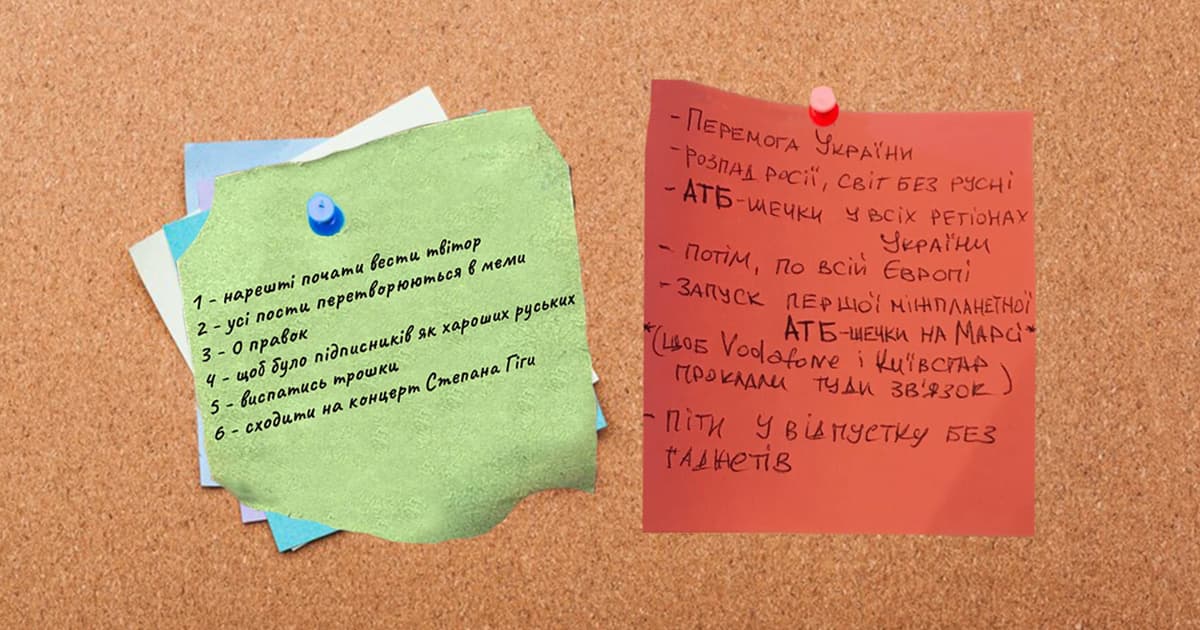 1 - нарешті почати вести твітор
2 - усі пости перетворюються в меми
3 - 0 правок
4 - щоб було підписників як хароших руських
5 - виспатись трошки
6 - сходити на концерт Степана Гіги
- ПЕРЕМОГА УКРАЇНИ
- РОЗПАД РОСІЇ, СВІТ БЕЗ РУСНІ
- АТБ-ШЕЧКИ У ВСІХ РЕГІОНАХ
УКРАЇНИ
- ПОТІМ, ПО ВСІЙ ЄВРОПІ
- ЗАПУСК ПЕРШОЇ МІЖПЛАНЕТНОЇ
АТБ-ШЕЧКИ НА МАРСІ*
*(ЩОБ Vodafone і КИЇВСТАР
ПРОКЛАЛИ ТУДИ ЗВ'ЯЗОК)
- ПІТИ У ВІДПУСТКУ БЕЗ
ҐАДЖЕТІВ